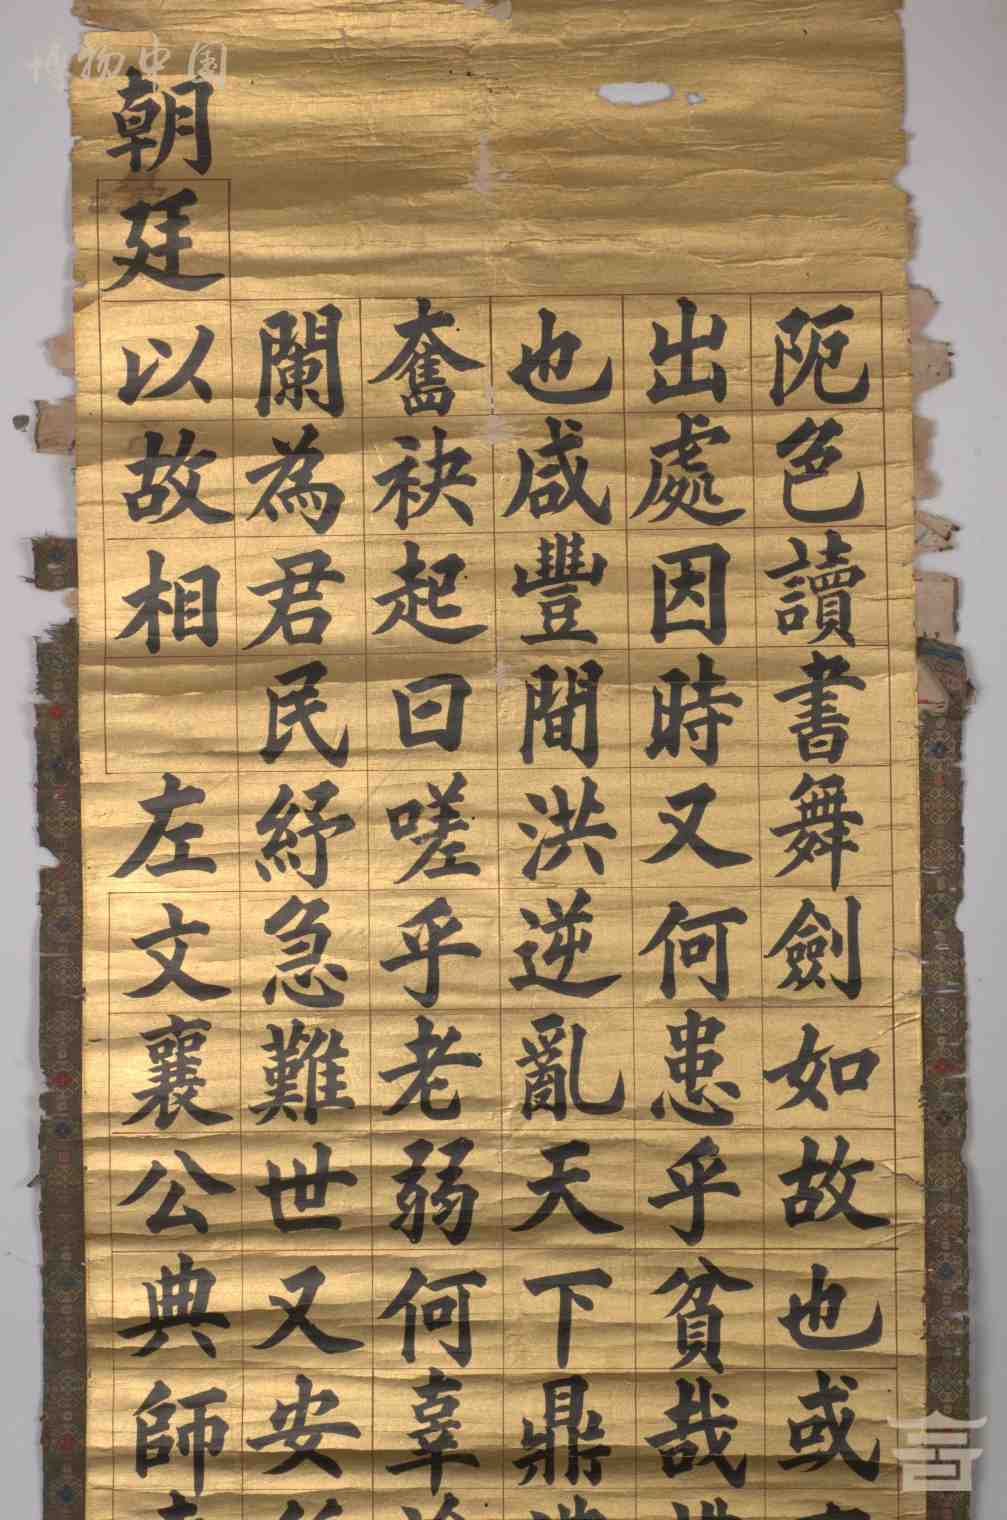 博物中国
阨色讀書舞劍如故也或
出處因時又何患乎貧哉
也咸豐間洪逆亂天下鼎
奮袂起曰嗟乎老弱何辜
闌為君民紓急難世又安
朝廷以故相左文襄公典師